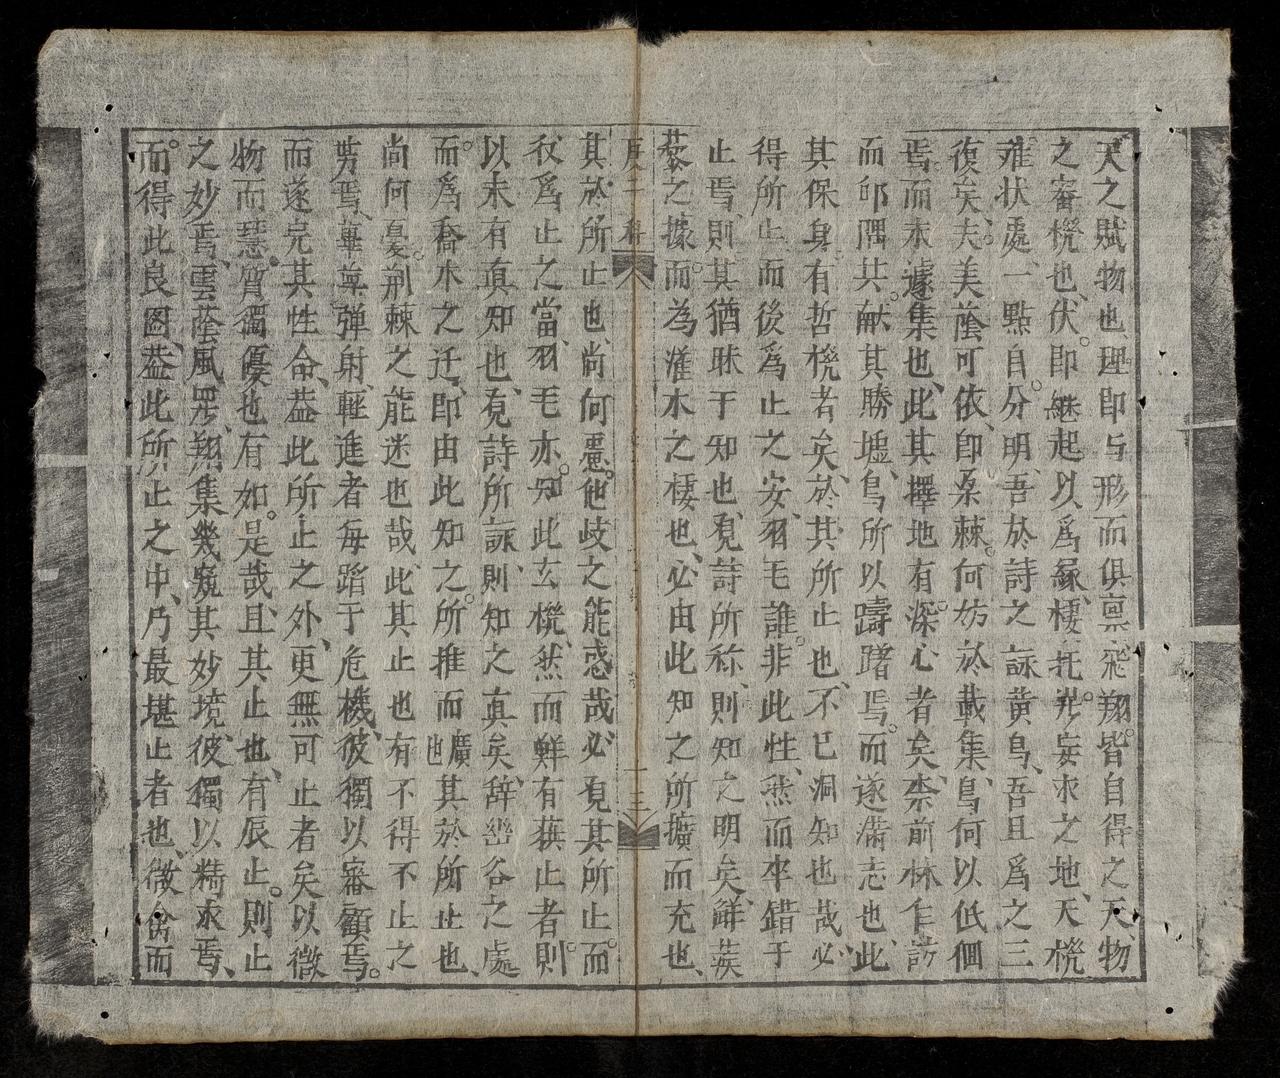 天之賦物也、理即与形而俱禀飛翔。皆自得之天物
之審機也、伏。即継起以爲緣、棲托。妄求之地、天機
难状處、一點自。分明、吾於詩之詠黄鳥、吾且爲之三
復矣、夫。美蔭可依、卽桑棘。何妨於載集、鳥何以低徊
焉。而未遽集也、此其擇地有深。心者矣、前林乍訪
而邱隅共献。其勝墟、鳥所以躊躇焉。而遂滿志也、此
其保身有哲機者矣、於其所止也、不已洞知也哉、必
得所止而後爲止之。安、羽毛誰。非此性、然而卒錯于
止焉、則其猶昧于知也、覔詩所称、則知之明矣、鮮蒺
藜之據。而為灌木之棲也、必由此知之所擴而充也、
序二科
十三
其於所止也、尚何慝。他歧之能惑哉、必覔其所止。而
衩爲止之當、羽毛亦。知此玄機、然而鮮有蔽止者。則
以未有真知也、覔詩所詠、則知之真矣、辞幽谷之處
而。爲喬木之迁、即由。此知之。所推而廣也其於所止也、
尚何憂。荊棘之能迷也哉、此其止也有不得不止之
勢焉、畢羅弹射、輕進者每蹈于危機、彼獨以審顧焉。
而遂完其性命、葢此所止之外、更無可止者矣以微
物而慧。質獨優也有如。是哉、且其止也、有辰止。則止
之妙焉、雲蔭風翆、翔集幾窺其妙境、彼獨以精求焉、
而。得此良圖、葢此所止之中、乃最堪止者也、微禽而